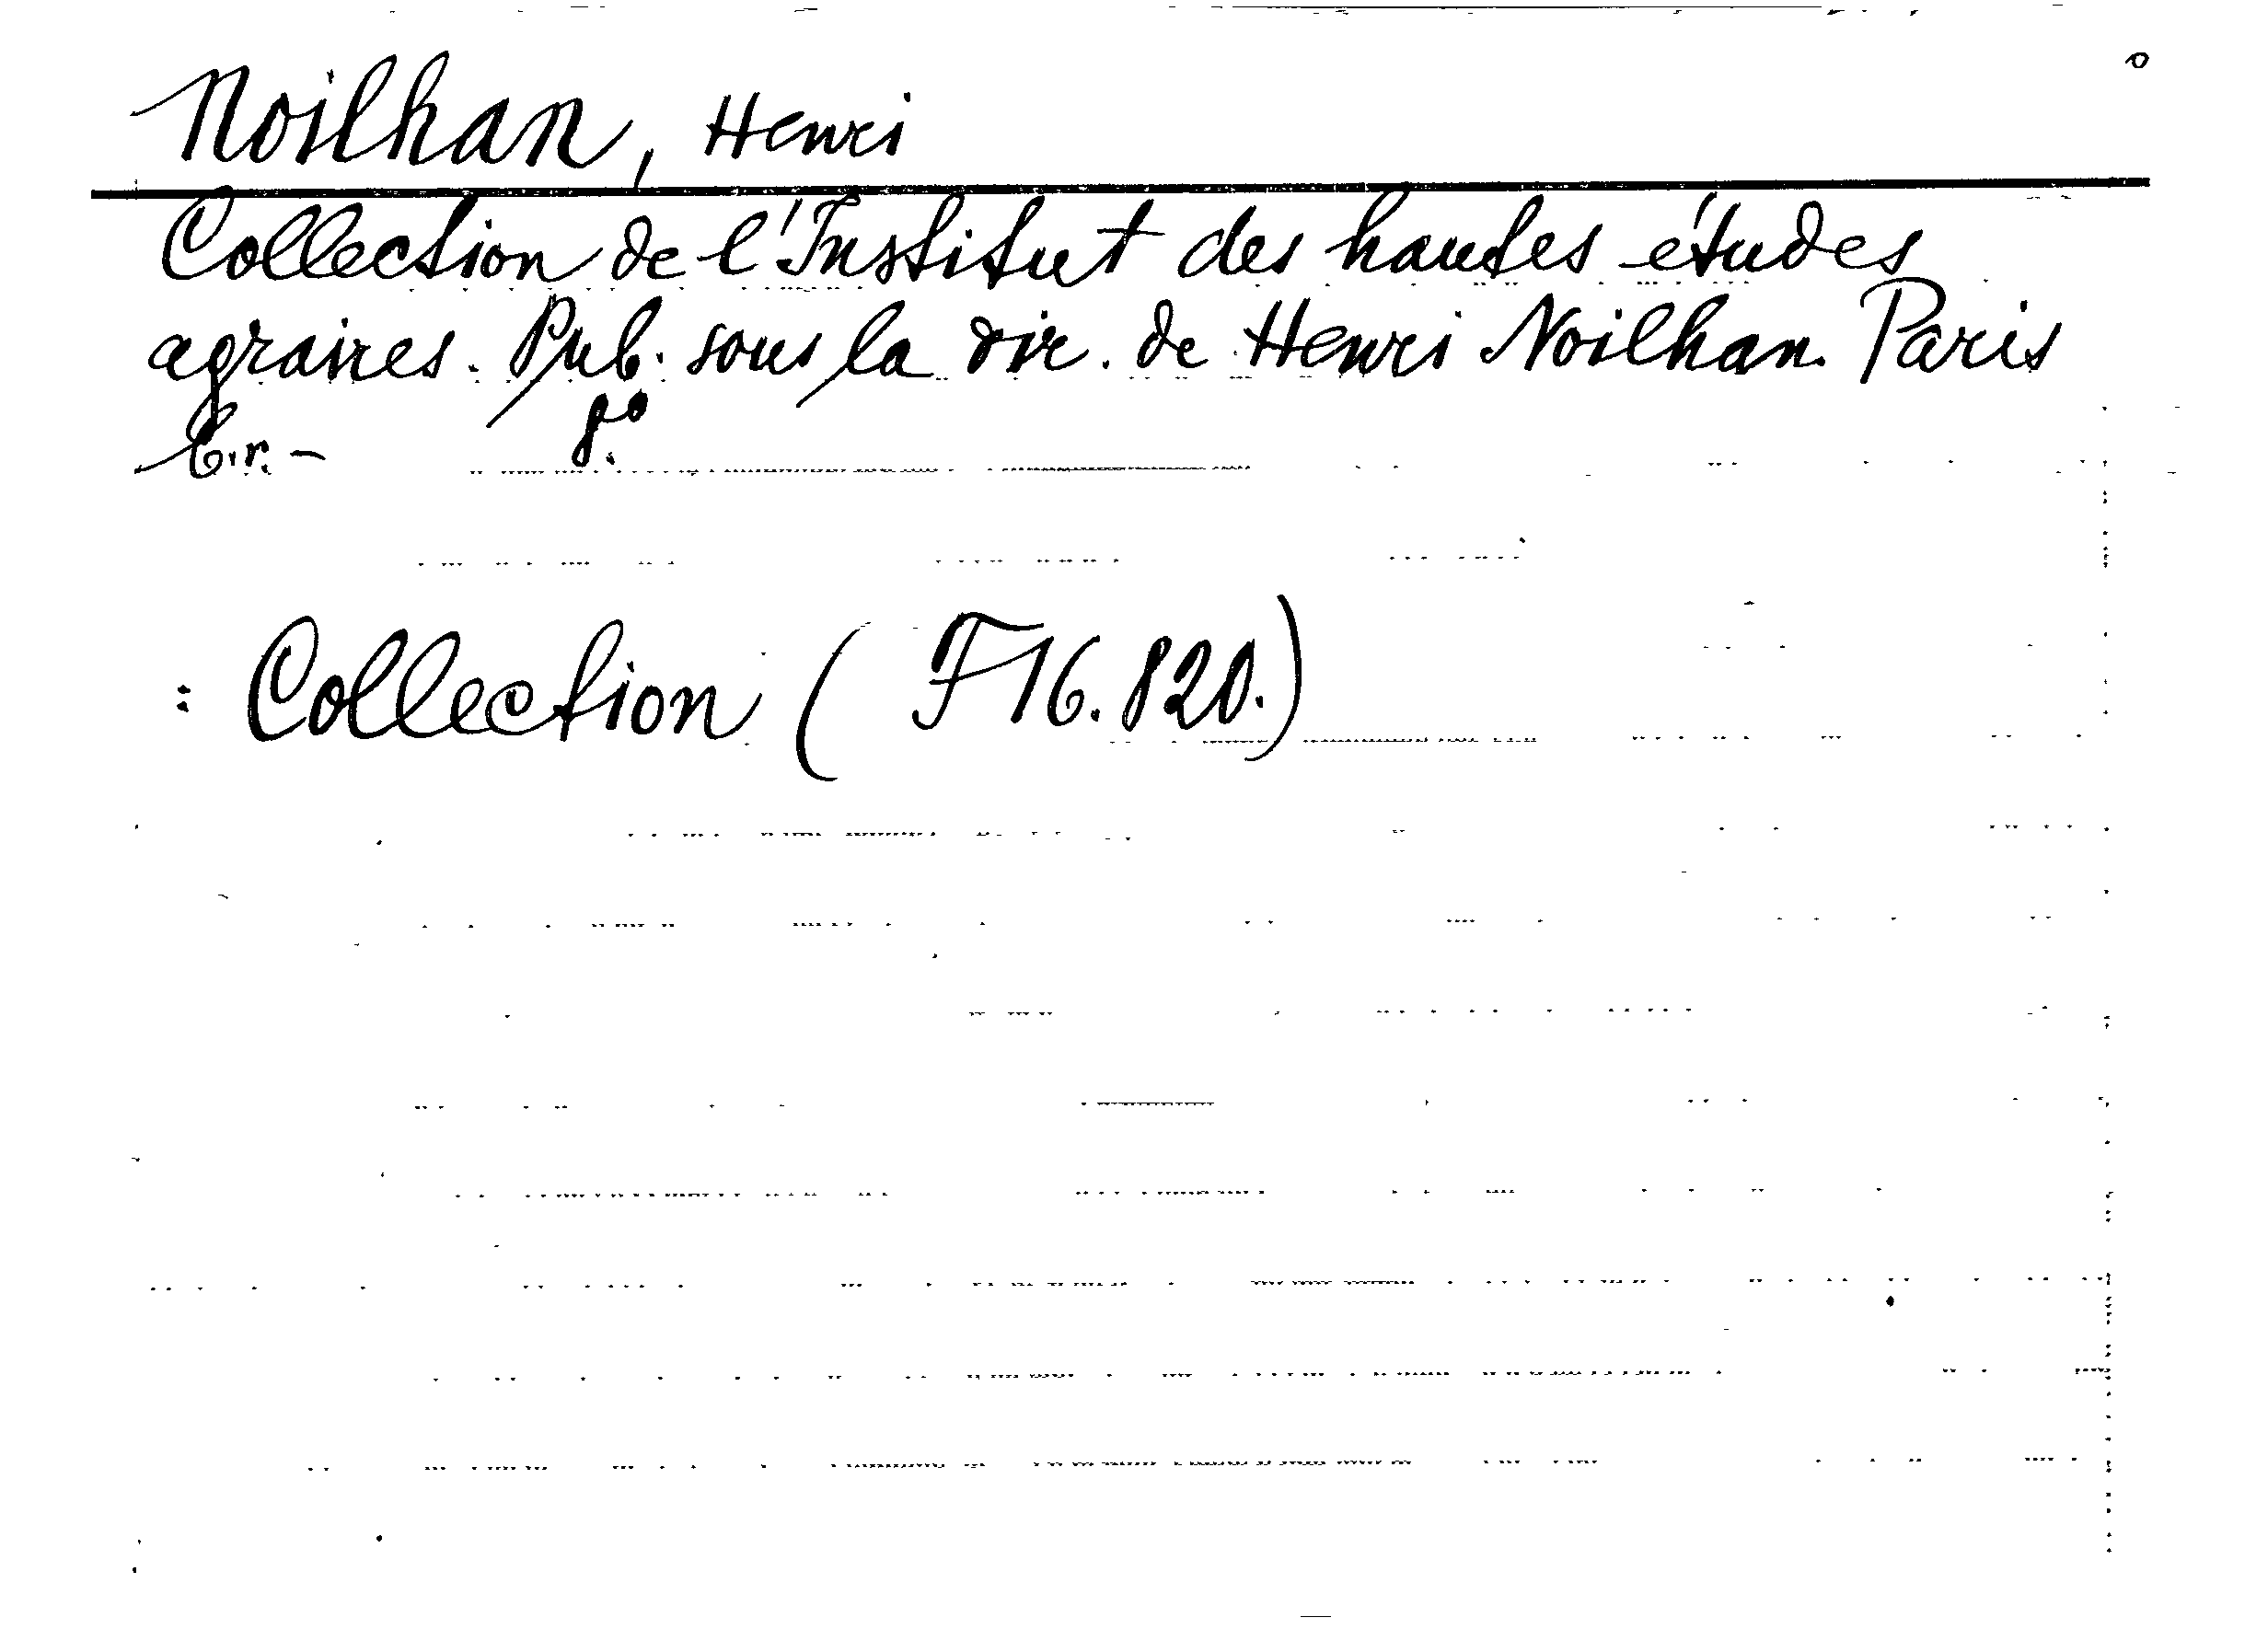 Noilhan, Henri
Collection de l'Institut des hautes études
agraires. Pub. sous la dir. de Henri Noilhan. Paris
8°.
: Collection ( F16.820.)